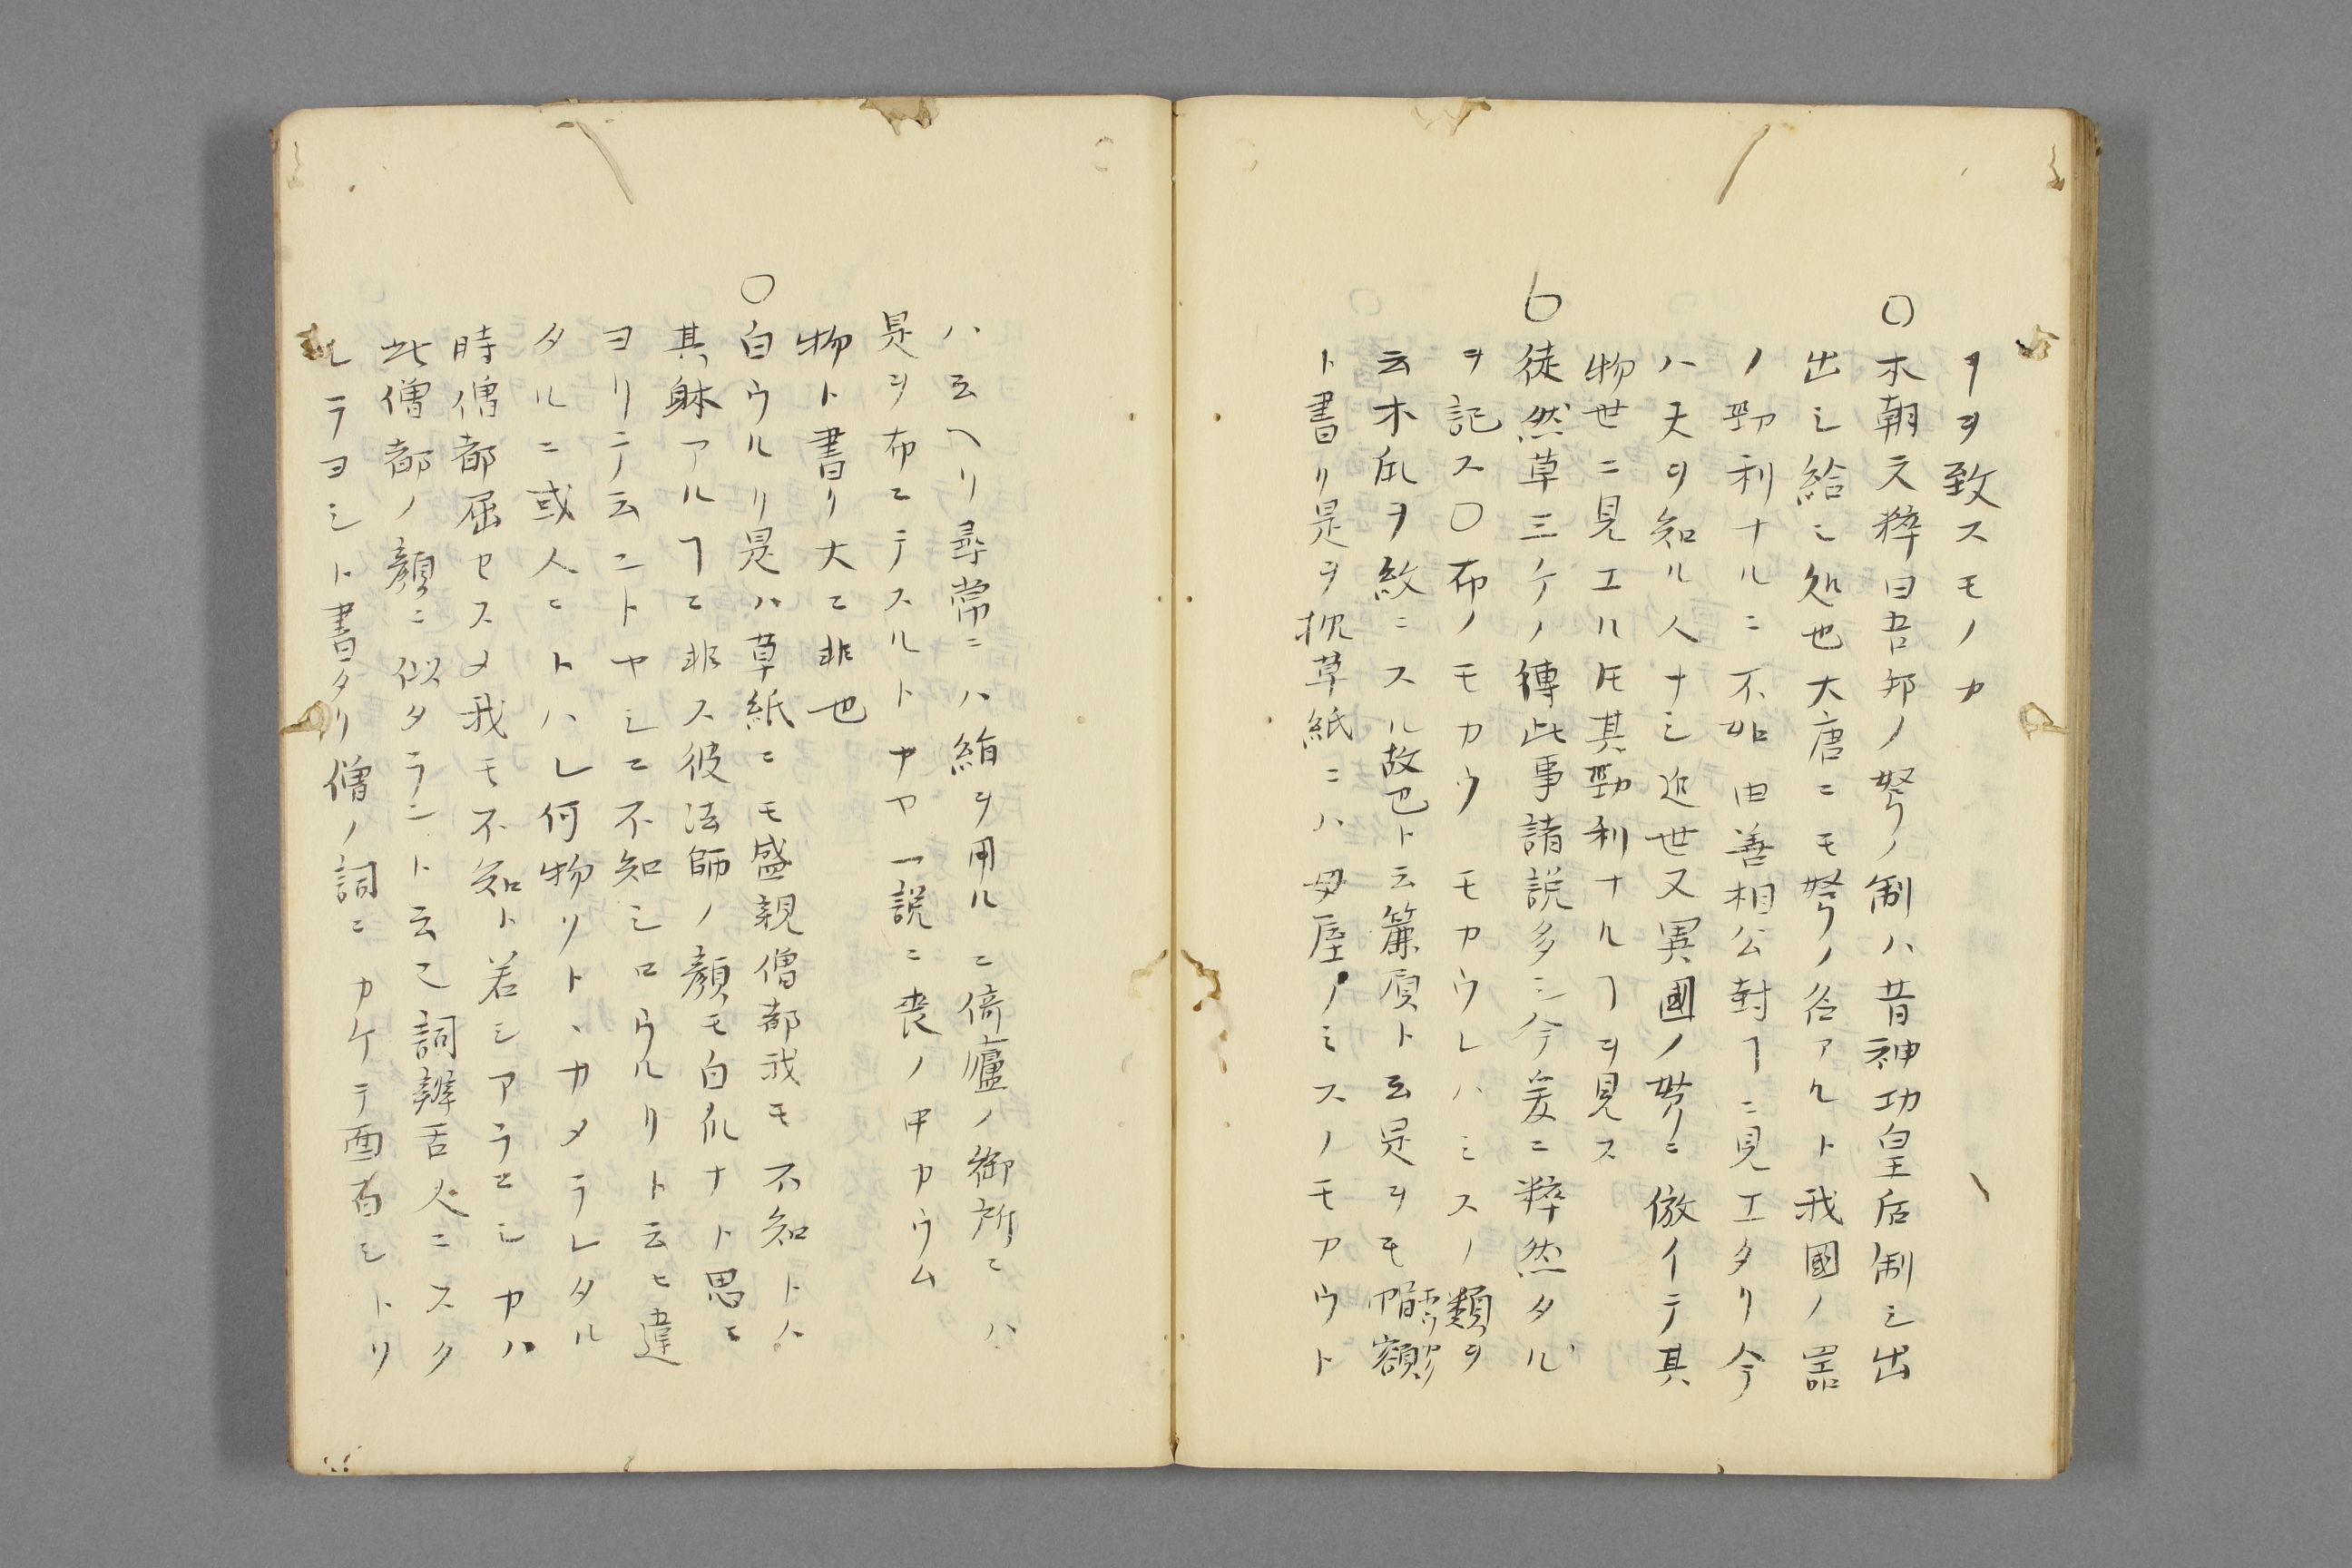 ヿヲ致スモノカ
〇本朝文粋曰吾邦ノ弩ノ制ハ昔神功皇后制シ出
出シ給シ処也大唐ニモ弩ノ名アルト我國ノ器
ノ勁利ナルニ不如由善相公封ヿニ見エタリ今
ハ夫ヲ知ル人ナシ近世又異國ノ弩ニ倣イテ其
物世ニ見エル𪜈其勁利ナルヿヲ見ス
〇徒然草三ケノ傳此事諸説多シ今爰ニ粹然タル
ヲ記ス〇布ノモカウ モカウレハミスノ類ヲ
云木瓜ヲ紋ニスル故巴ト云簾頂ト云是ヲモ帽額
ト書リ是ヲ枕草紙ニハ母屋ノミスノモカウト
ハ云ヘリ尋常ニハ絹ヲ用ルニ倚廬ノ御所ニハ
是ヲ布ニテスルトカヤ一説ニ喪ノ甲カウム
物ト書リ大ニ非也
〇白ウルリ是ハ草紙ニモ盛親僧都我モ不知トハ
其躰アルヿニ非ス彼法師ノ顔モ白瓜ナト思ニ
ヨリテ云ニトヤシニ不知シロウルリト云ヒ違
タルニ或人ニトハレ何物リトヽカメラレタル
時僧都屈セスメ我モ不知ト若シアラマシカハ
此僧都ノ顔ニ似タラント云テ詞辨舌人ニスク
レテヨシト書タリ僧ノ詞ニカケテ面白シトリ